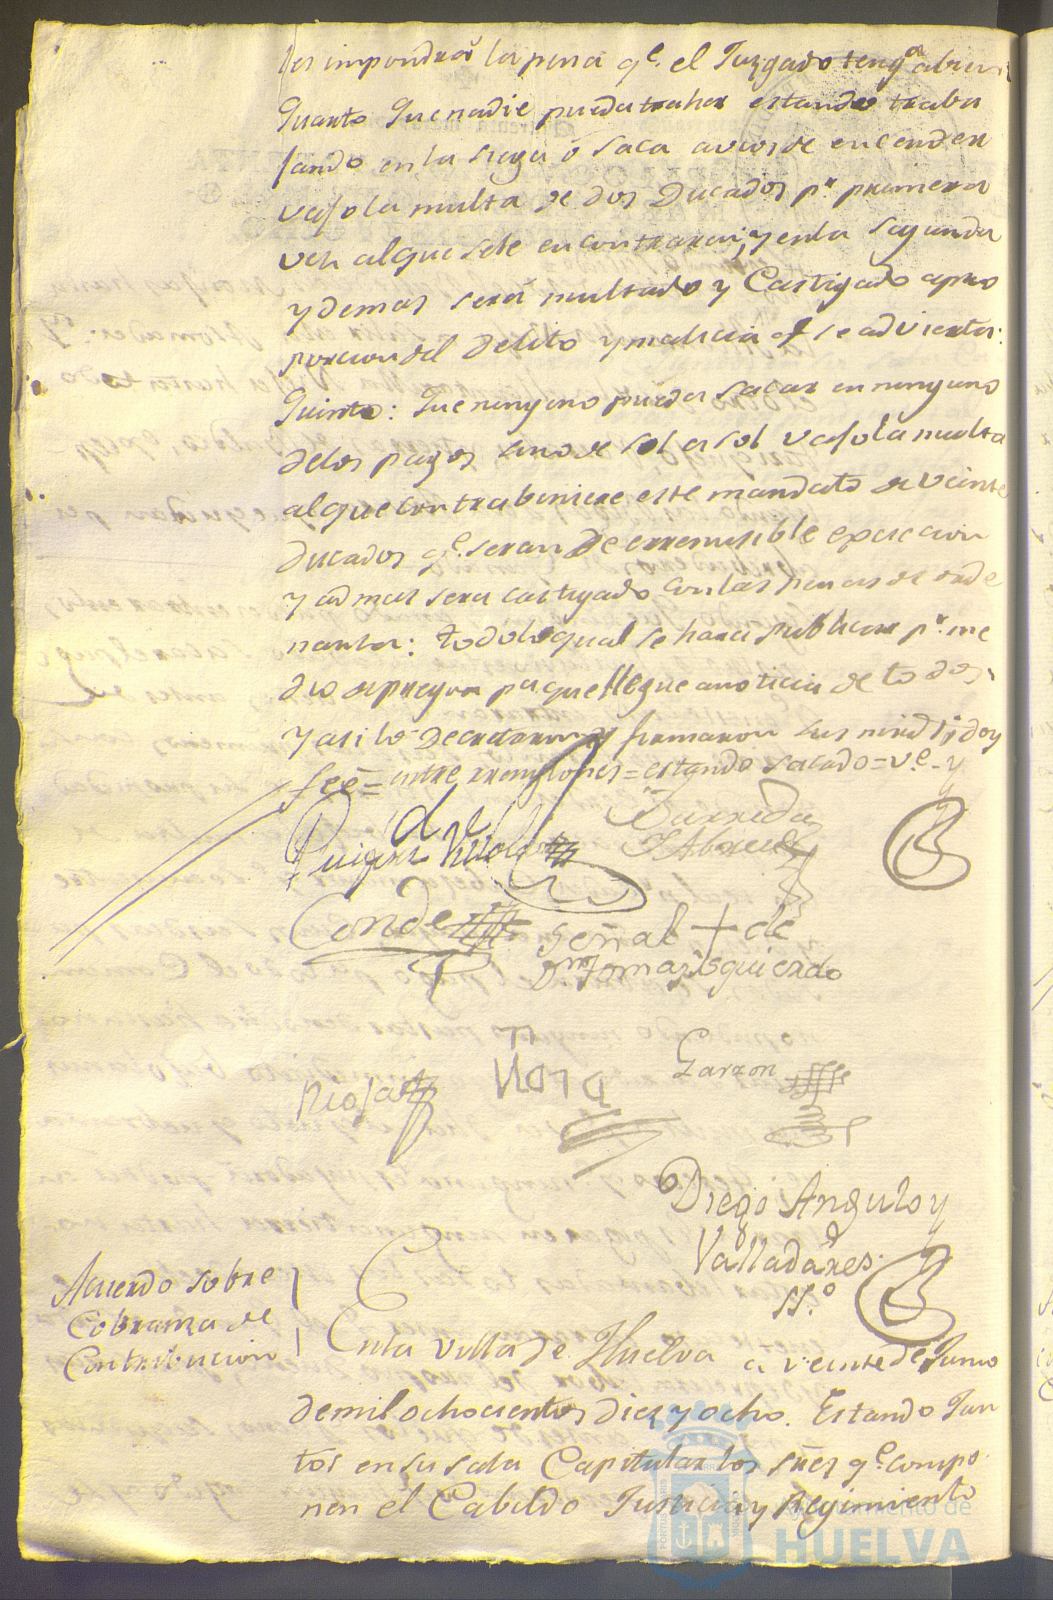 les impondrá la pena q.e el Juzgado tenga abien
Quarto Que nadie pueda traher estando traba
jando en la siega ó saca avios de encender
vajo la multa de dos Ducados p.r primera
vez al que se le encontraran; y en la segunda
y demas será multado y Castigado apro
porcion del delito y malicia q.e se advierta:
Quinto: Que ninguno pueda sacar en ninguno
delos pagos sino de sol a sol vajo la multa
al que contrabiniere este mandato de veinte
ducados q.e seran de erremisible execucion
y ad mas sera castigado con las penas de orde
nanza: todo lo qual se hara publicar p.r me
dio de pregon pa que llegue a noticia de todos,
y asi lo Decretaron y firmaron sus mrds; doy
feé = entre renglones = estando sacado = v.e - y
Barreda
Conde
señal + de
D.n Tomas Isquierdo
Rioja
Garzon
Diego Angulo y
Valladares
ss.o
Acuerdo sobre
Cobranza de
Contribucion
En la villa de Huelva a veinte de Junio
de mil ochocientos diez y ocho. Estando Jun
tos en su sala Capitular los sres q.e compo
nen el Cabildo Justicia y Regimiento
Ayuntamiento de
HUELVA